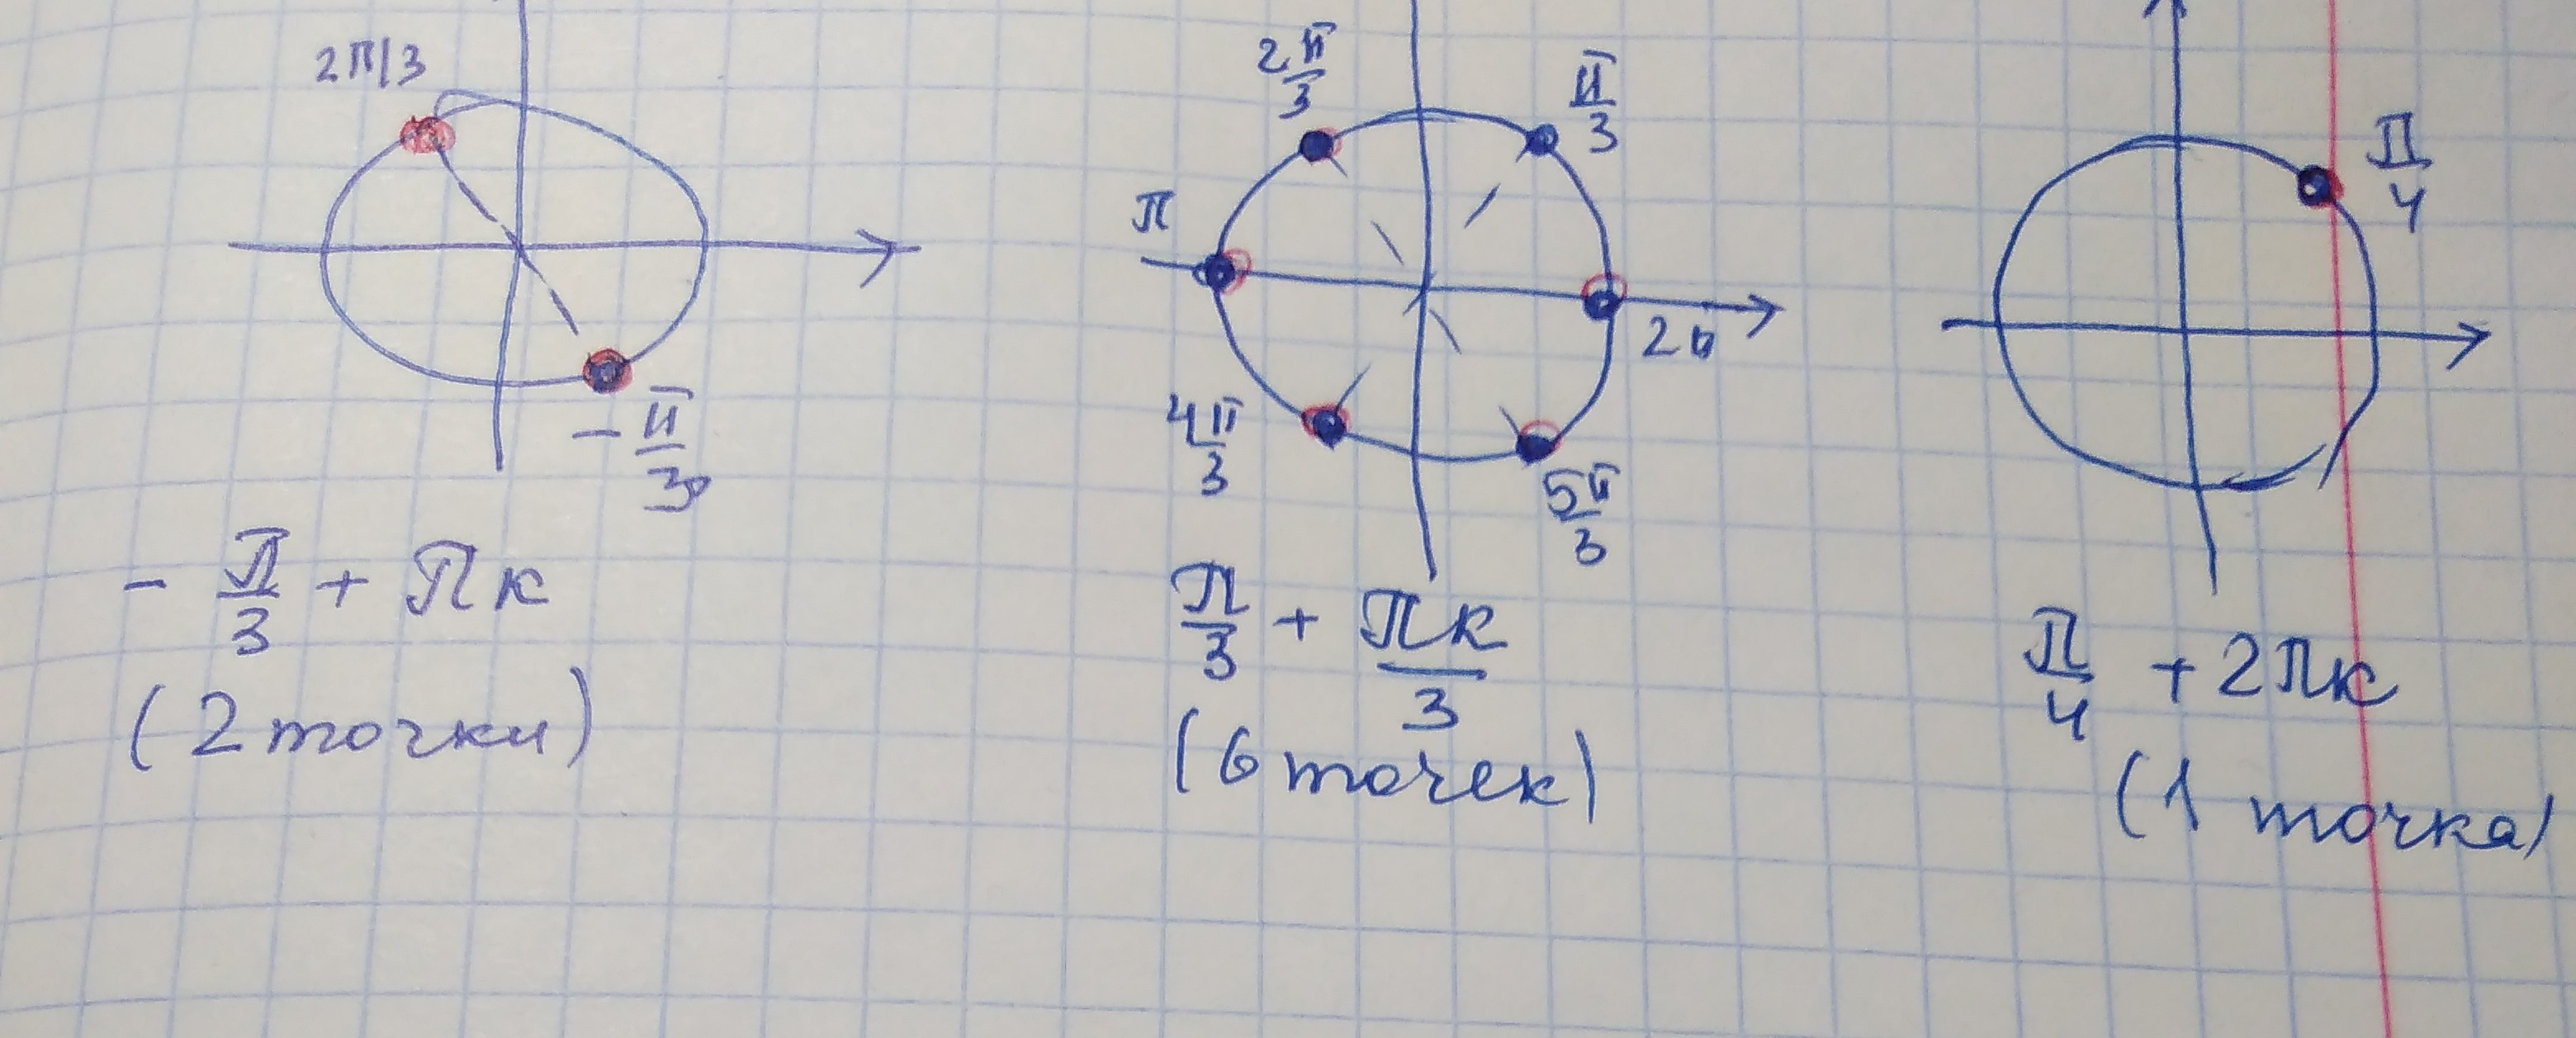 2π/3
-π/3
-π/3 + πк
(2 точки)
2π/3
π/3
π
2π
4π/3
5π/3
π/3 + πк/3
(6 точек)
π/4
π/4 + 2πк
(1 точка)